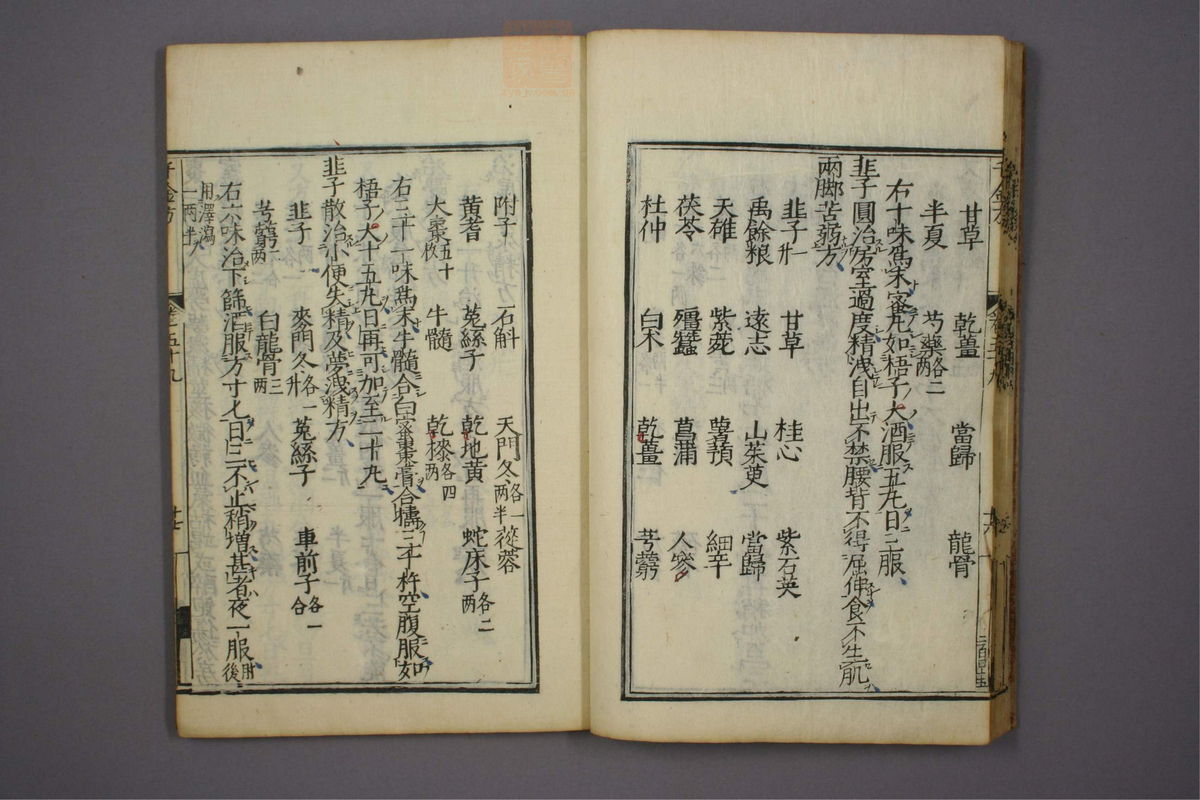 甘草 乾薑 當歸 龍骨
半夏 芍藥各二兩
右十味爲末蜜丸如梧子大酒服五丸日三服
韭子圓治房室過度精洩自出不禁腰背不得屈伸食不生肌
兩脚苦弱方
韭子 甘草 桂心 紫石英
禹餘粮 遠志 山茱萸 當歸
天雄 紫菀 薯蕷 細辛
茯苓 殭蠶 菖蒲 人參
杜仲 白朮 乾薑 芎藭
附子 石斛 天門冬各一兩半 蓯蓉
黃耆 菟絲子 乾地黃 蛇床子各二兩
大棗五十枚 牛髓 乾漆各四兩
右二十一味爲末牛髓合白蜜棗膏合擣三千杵空腹服如
梧子大十五丸日再可加至二十丸
韭子散治小便失精及夢洩精方
韭子 麥門冬各一 菟絲子 車前子各一合
芎藭二兩 白龍骨三兩
右六味治下篩酒服方寸匕日三不止稍增甚者夜一服肘後
用澤瀉一兩半
千金方